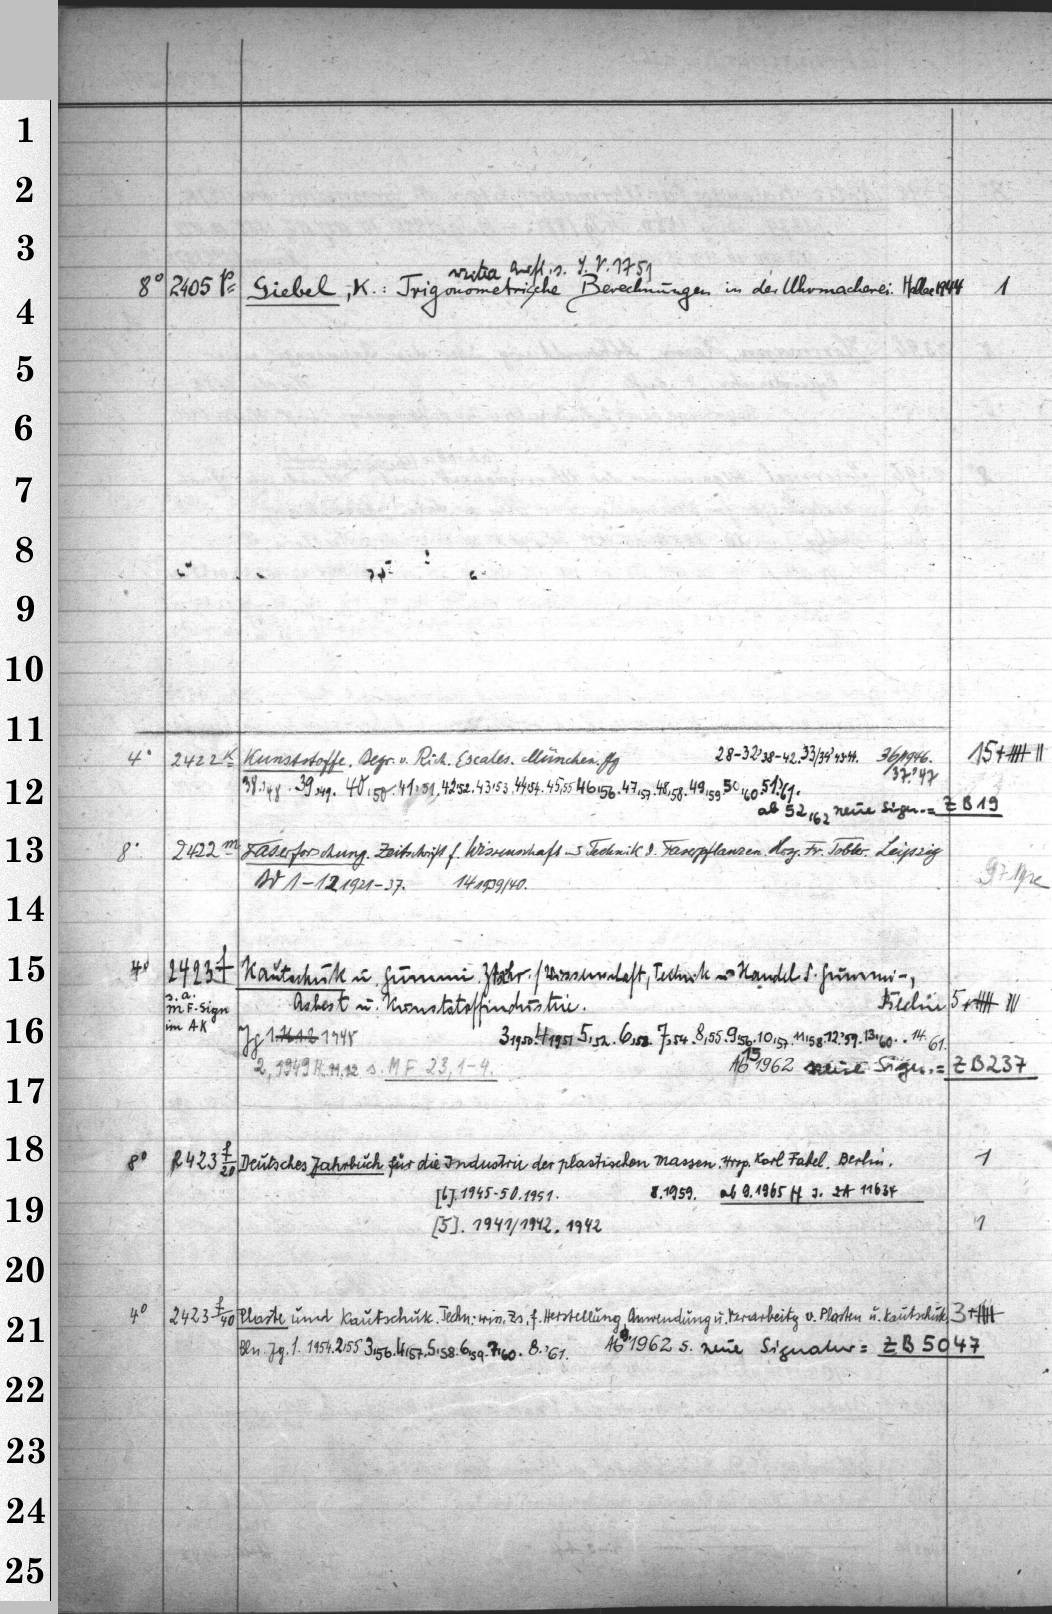 1
2
3
weitere Aufl. s. Y. V. 1751
8° 2405 p= Giebel, K.: Trigonometrische Berechnungen in der Uhrmacherei. Halle 1944 1
4
5
6
7
8
9
10
11
4° 2422 k= Kunststoffe. Begr. v. Rich. Escales. München. Jg 28-32'38-42. 33/34'43-44. 36/1946. 15+
37.'47
12
38.'48. 39.'49. 40,50. 41,'51, 42,52. 43,53. 44,54. 45,55 46,56. 47,57. 48,58. 49,59 50,'60 51,'61.
ab 52,'62 neue Sign. = ZB19
13
8° 2422 m Faserforschung. Zeitschrift f. Wissenschaft u Technik d. Faserpflanzen. Hrg. Fr. Tobler. Leipzig
Bd 1-12 1921-37. 14 1939/40.
14
15
4° 2423 f Kautschuk u. Gummi. Ztschr. f Wissenschaft, Technik u Handel d. Gummi-,
s. a. Asbest u. Kunststoffindustrie. Berlin 5+
m F-Sign
im AK
16
Jg 1 1948 3 1950. 4 1951 5,52. 6,53. 7,54. 8,55. 9,56. 10,57. 11,58. 12,'59. 13,'60.. 14,'61.
2, 1949 H. 11.12 s. MF 23, 1-4. Ab 15 1962 neue Sign. = ZB237
17
18
8° 2423 f/20 Deutsches Jahrbuch für die Industrie der plastischen Massen. Hrsg. Karl Fabel. Berlin. 1
[6]. 1945-50. 1951. 8. 1959. ab 9. 1965 ff s. ZA 11634
19
[5]. 1941/1942. 1942 1
20
4° 2423 f/40 Plaste und Kautschuk. Techn.-wiss. Zs. f. Herstellung, Anwendung u. Verarbeitg v. Plasten u. Kautschuk. 3+
21
Bln. Jg. 1. 1954. 2,55 3,56. 4,57. 5,58. 6,59. 7,60. 8.'61. Ab 9 1962 s. neue Signatur = ZB 5047
22
23
24
25